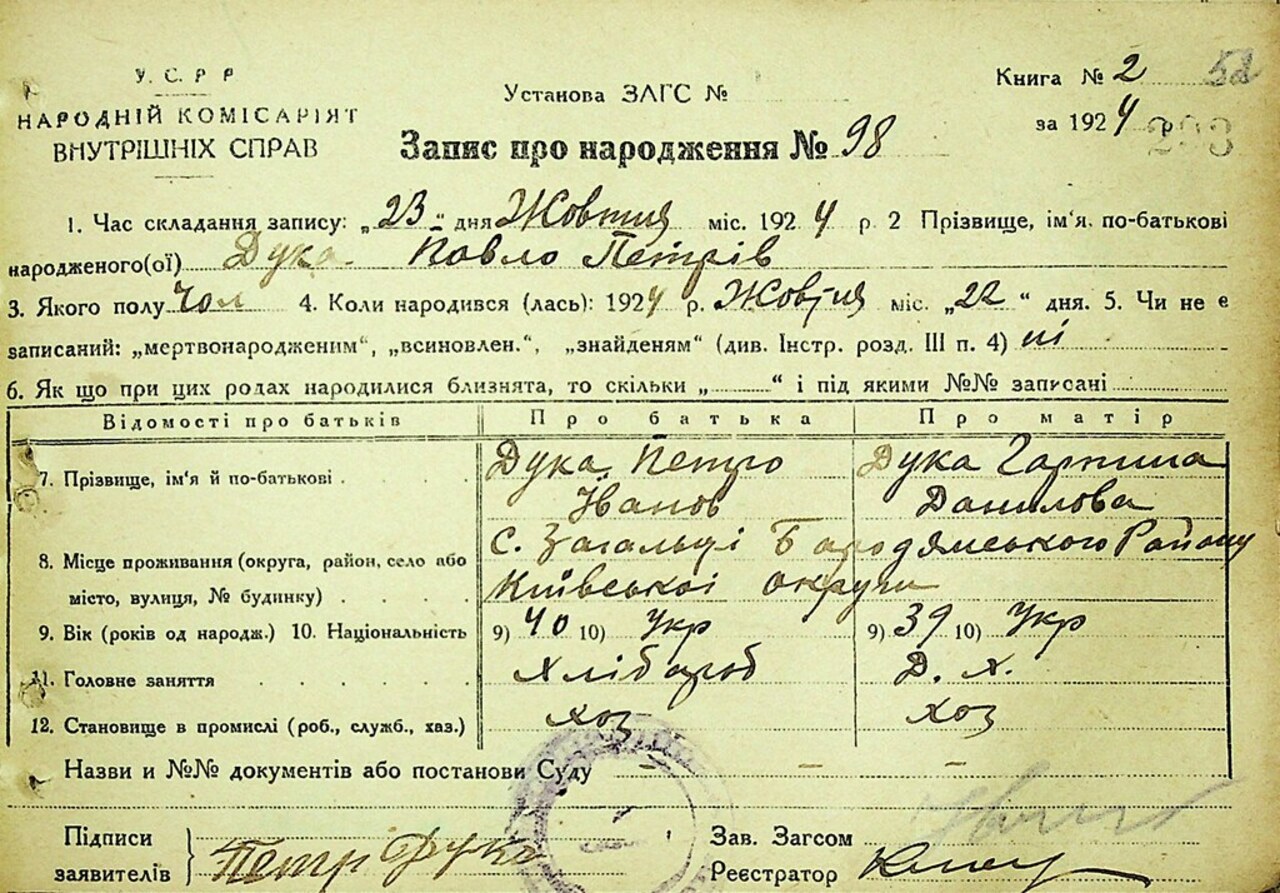 У. С. Р Р
НАРОДНІЙ КОМІСАРІЯТ
ВНУТРІШНІХ СПРАВ
Установа ЗАГС №
Книга № 2 52
за 1924 р 293
Запис про народження № 98
1. Час складання запису: „23“ дня Жовтня міс. 1924 р. 2 Прізвище, ім'я. по-батькові
народженого(ої) Дука Павло Петрів
3. Якого полу Чол 4. Коли народився (лась): 1924 р. Жовтня міс. „22“ дня. 5. Чи не є
записаний: „мертвонародженим“, „всиновлен.“, „знайденям“ (див. Інстр. розд. III п. 4) ні
6. Як що при цих родах народилися близнята, то скільки „ “ і під якими №№ записані
Відомості про батьків Про батька Про матір
7. Прізвище, ім'я й по-батькові Дука Петро Дука Гарпина
Іванов Данилова
8. Місце проживання (округа, район, село або с. Загальці Бародямського Району
місто, вулиця, № будинку) Київської округи
9. Вік (років од народж.) 10. Національність 9) 40 10) Укр 9) 39 10) Укр
11. Головне заняття Хлібароб Д. Х.
12. Становище в промислі (роб., служб., хаз.) хоз хоз
Назви и №№ документів або постанови Суду – –
Підписи Зав. Загсом
заявителів Петр Дука Реєстратор